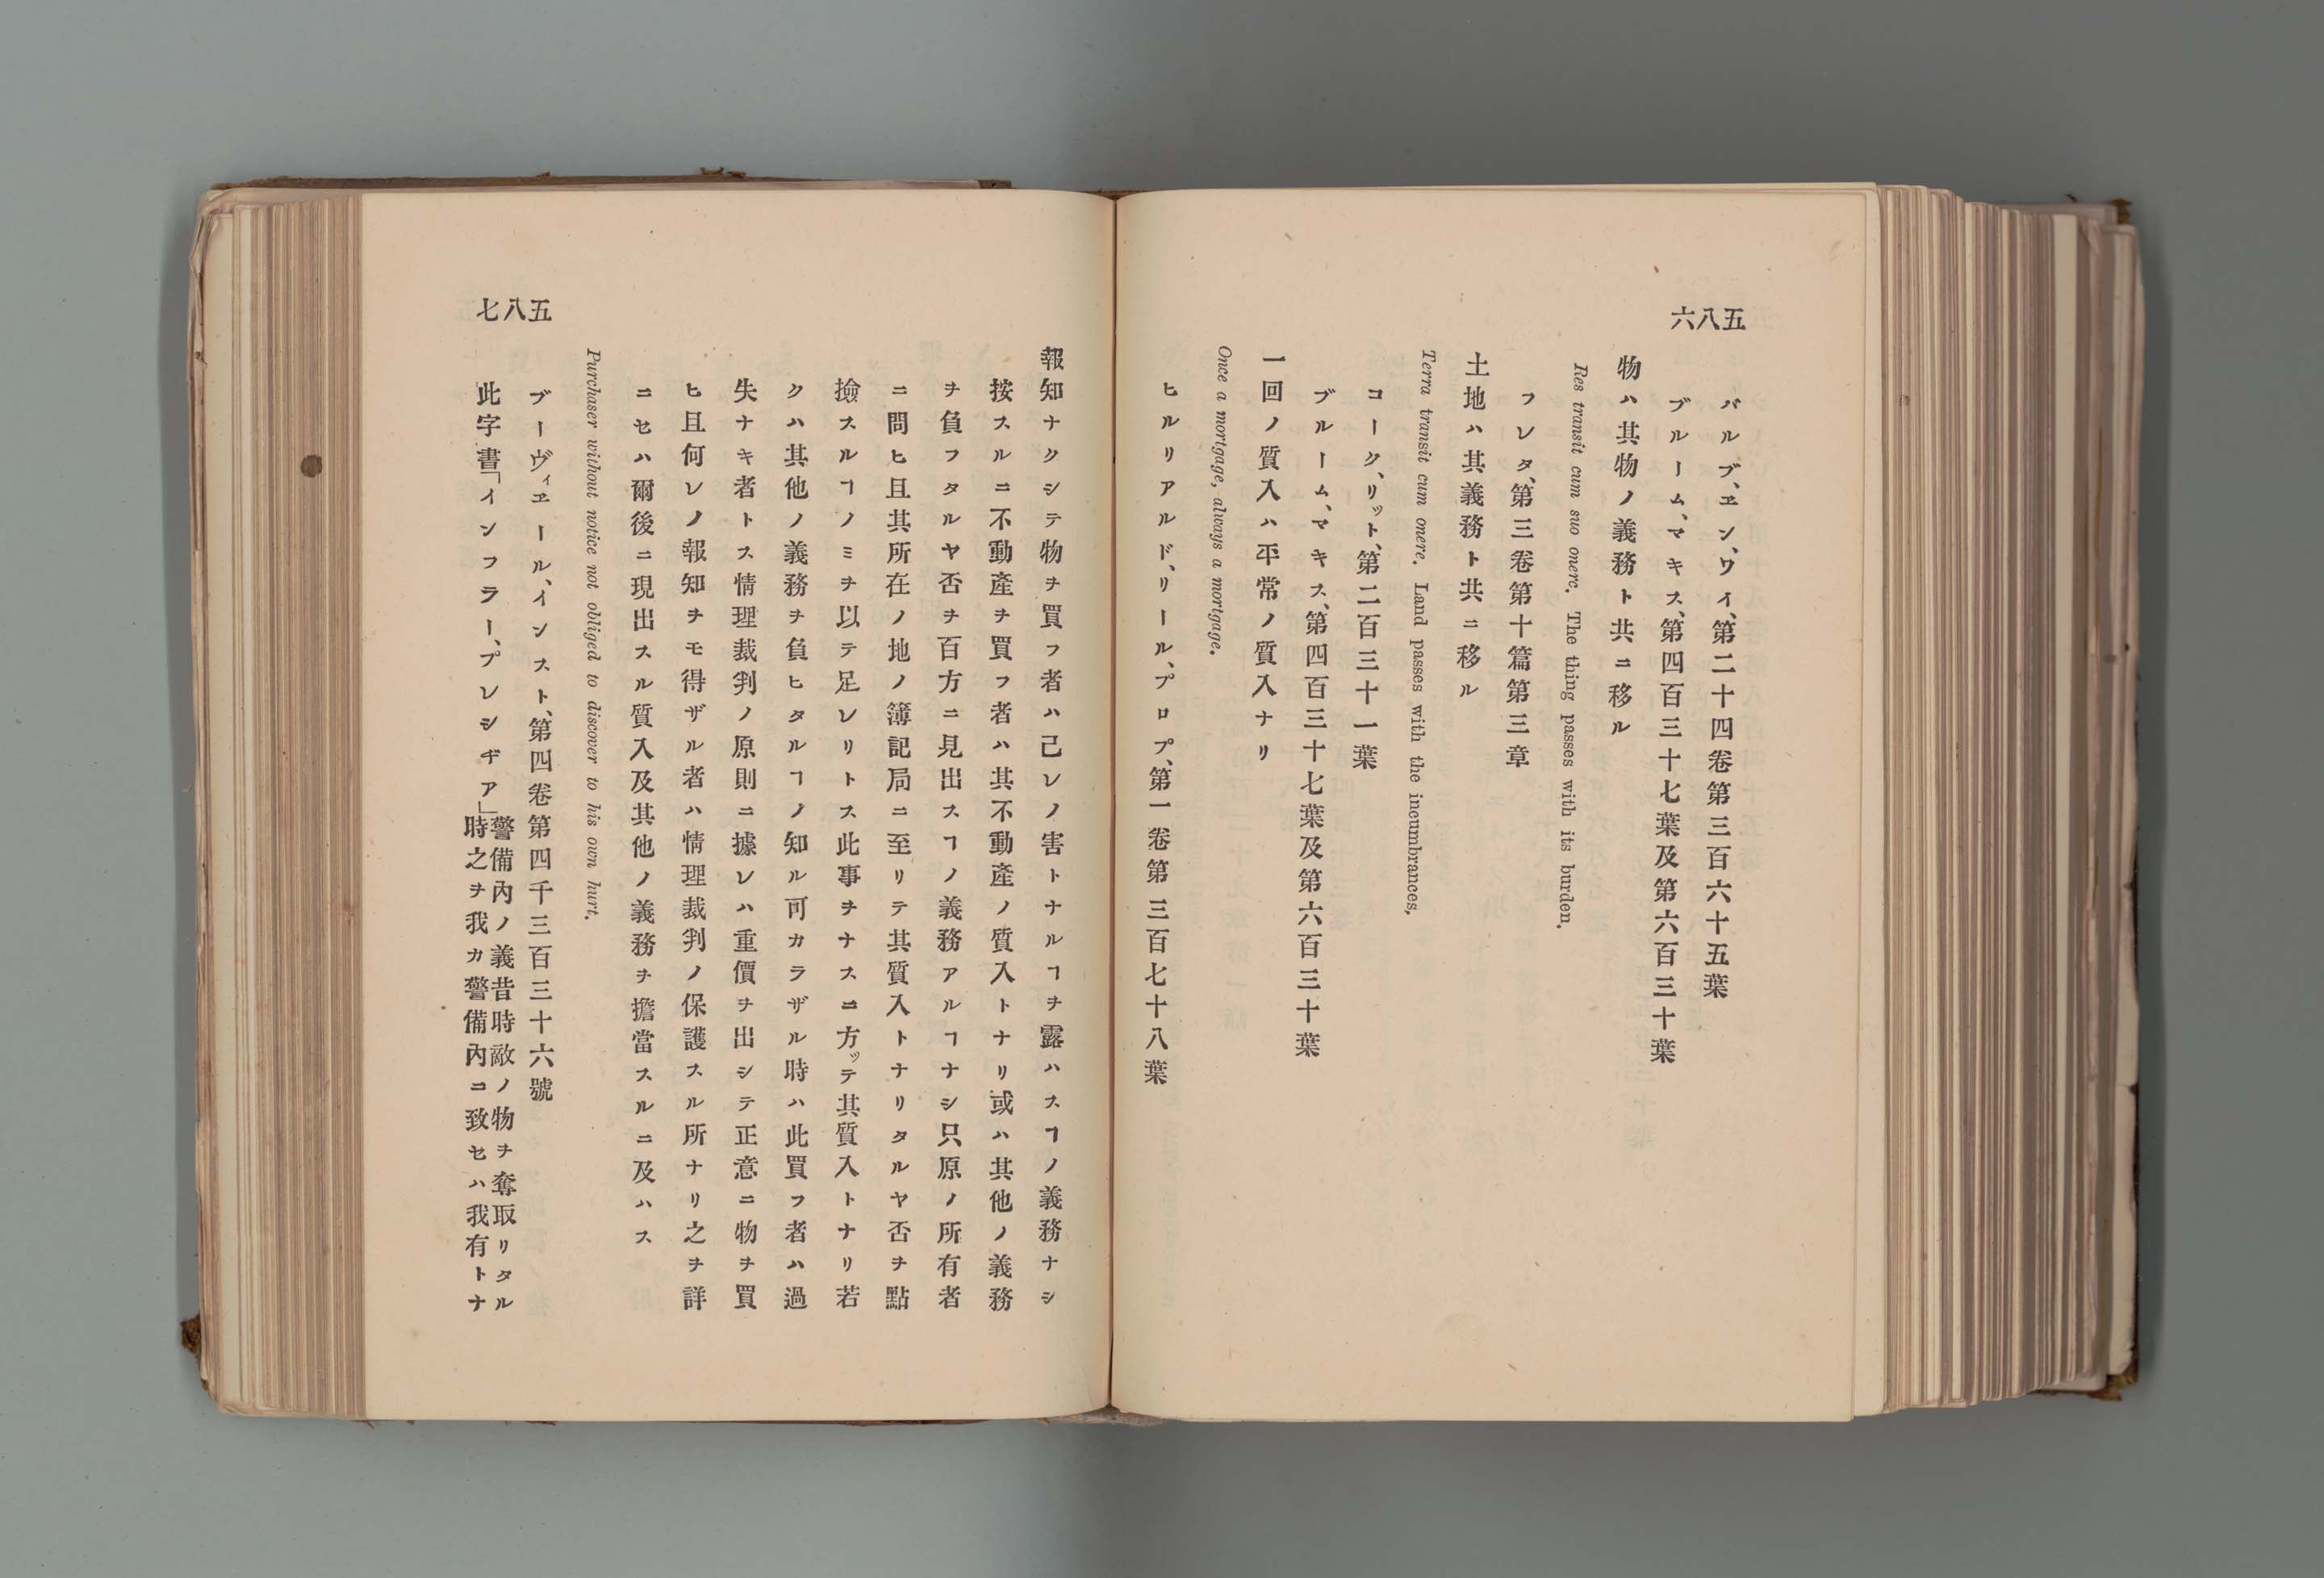 五八六
バルブ、ヱン、ワイ、第二十四卷第三百六十五葉
ブルーム、マキス、第四百三十七葉及第六百三十葉
物ハ其物ノ義務ト共ニ移ル
Res transit cum suo onere. The thing passes with its burden.
フレタ、第三卷第十篇第三章
土地ハ其義務ト共ニ移ル
Terra transit cum onere. Land passes with the incumbrances,
コーク、リット、第二百三十一葉
ブルーム、マキス、第四百三十七葉及第六百三十葉
一回ノ質入ハ平常ノ質入ナリ
Once a mortgage, always a mortgage.
ヒルリアルド、リール、プロプ、第一卷第三百七十八葉
五八七
報知ナクシテ物ヲ買フ者ハ己レノ害トナルヿヲ露ハスヿノ義務ナシ
按スルニ不動產ヲ買フ者ハ其不動產ノ質入トナリ或ハ其他ノ義務
ヲ負フタルヤ否ヲ百方ニ見出スヿノ義務アルヿナシ只原ノ所有者
ニ問ヒ且其所在ノ地ノ簿記局ニ至リテ其質入トナリタルヤ否ヲ點
撿スルヿノミヲ以テ足レリトス此事ヲナスニ方ッテ其質入トナリ若
クハ其他ノ義務ヲ負ヒタルヿノ知ル可カラザル時ハ此買フ者ハ過
失ナキ者トス情理裁判ノ原則ニ據レハ重價ヲ出シテ正意ニ物ヲ買
ヒ且何レノ報知ヲモ得ザル者ハ情理裁判ノ保護スル所ナリ之ヲ詳
ニセハ爾後ニ現出スル質入及其他ノ義務ヲ擔當スルニ及ハス
Purchaser without notice not obliged to discover to his own hurt.
ブーヴィヱール、インスト、第四卷第四千三百三十六號
此字書「インフラー、プレシヂア」警備內ノ義昔時敵ノ物ヲ奪取リタル
時之ヲ我カ警備內ニ致セハ我有トナ